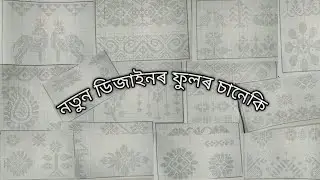 নতুন ডিজাইনৰ ফুলৰ চানেকি